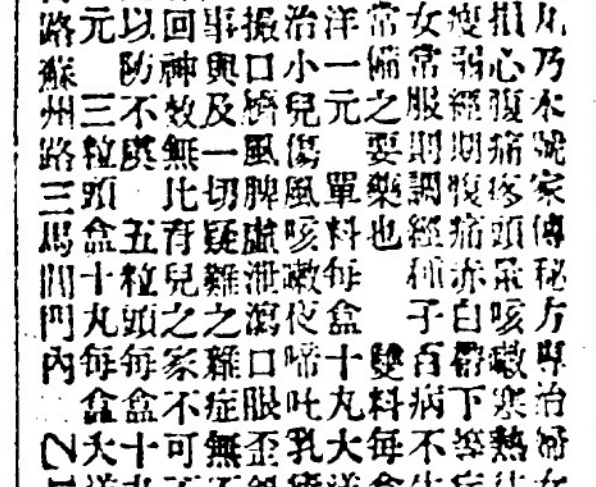 丸乃本號家傳秘方專治婦女
損心腹痛疼頭暈咳嗽寒熱
瘦弱經期腹痛赤白帶下等症
女常服則調經種子百病不
常備之要藥也 雙料每盒
洋一元 單料每盒十丸大洋
治小兒傷風咳嗽夜啼吐乳
撮口臍風脾虛泄瀉口眼歪
事與及一切疑難之雜症無
回神效無比育兒之家不可
以防不虞 五粒頭每盒十
元 三粒頭盒十丸每盒大洋
路蘇州路三馬門內